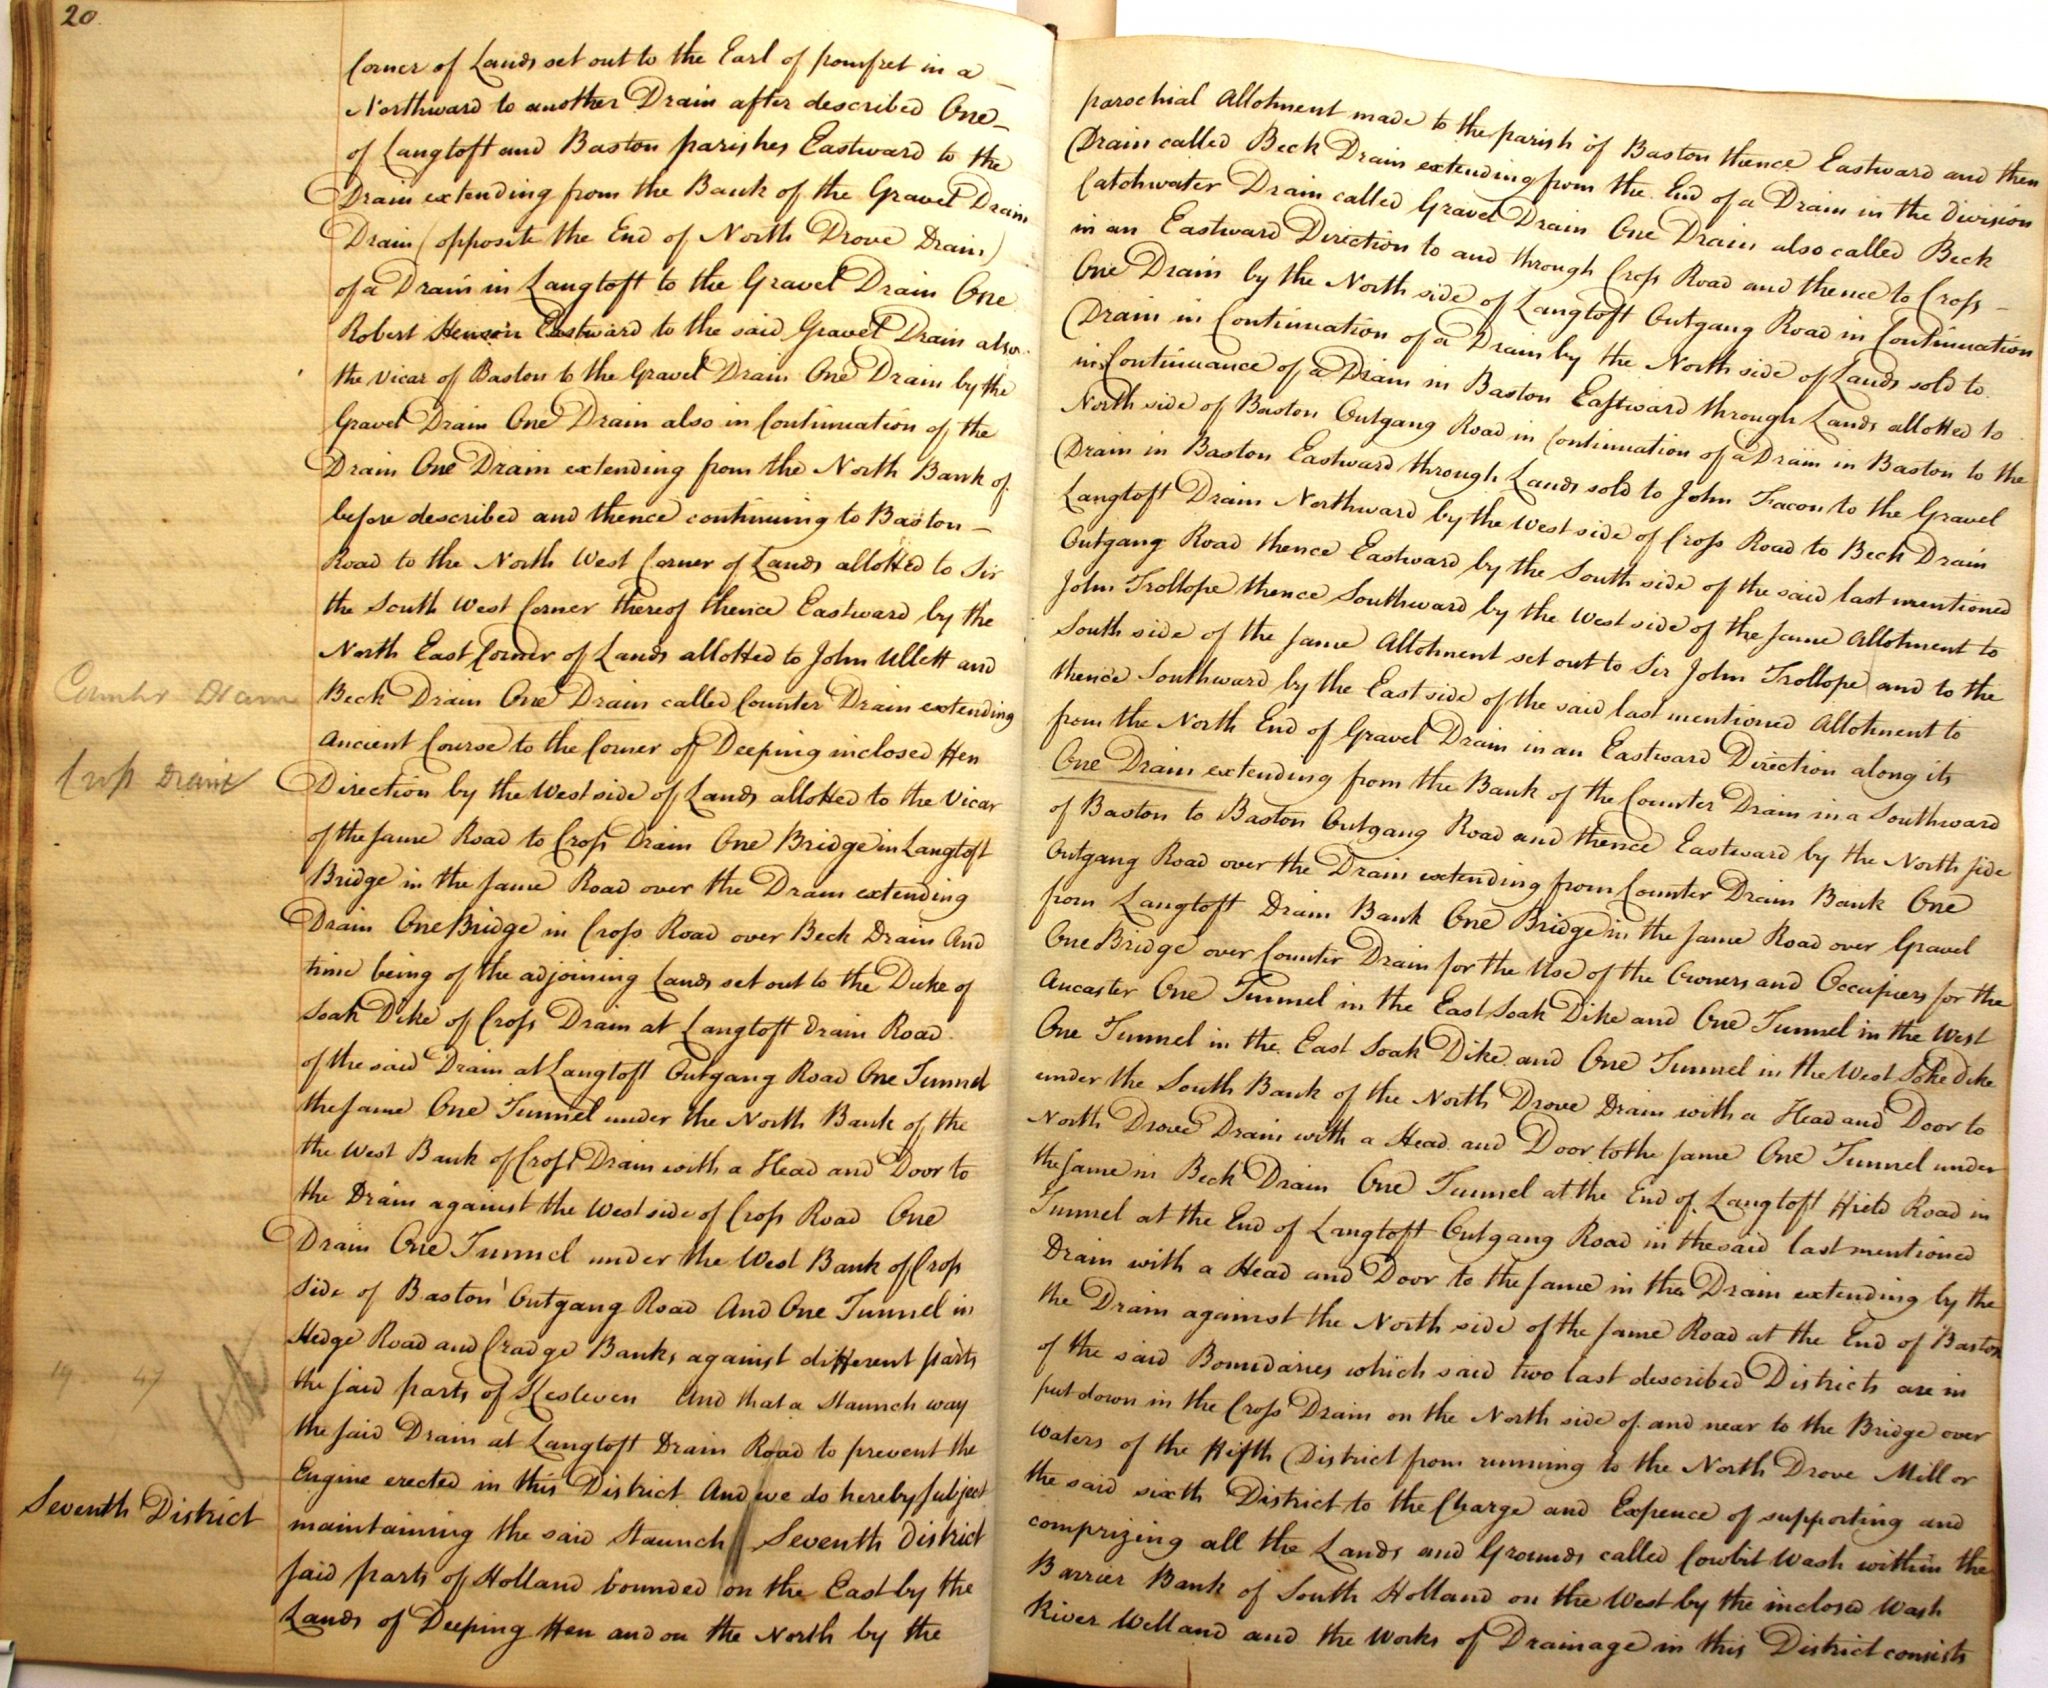 20
Corner of Lands set out to the Earl of pomfret in a
Northward to another Drain after described One
of Langtoft and Baston parishes Eastward to the
Drain extending from the Bank of the Gravel Drain
Drain (opposite the End of North Drove Drain)
of a Drain in Langtoft to the Gravel Drain One
Robert Henson Eastward to the said Gravel Drain also
the Vicar of Baston to the Gravel Drain One Drain by the
Gravel Drain One Drain also in Continuation of the
Drain One Drain extending from the North Bank of
before described and thence continuing to Baston
Road to the North West Corner of Lands allotted to Sir
the South West Corner thereof thence Eastward by the
North East Corner of Lands allotted to John Ullett and
Counter Drain
Beck Drain One Drain called Counter Drain extending
Ancient Course to the Corner of Deeping inclosed Fen
Cross Drain
Direction by the West side of Lands allotted to the Vicar
of the same Road to Cross Drain One Bridge in Langtoft
Bridge in the same Road over the Drain extending
Drain One Bridge in Cross Road over Beck Drain And
time being of the adjoining Lands set out to the Duke of
Soak Dike of Cross Drain at Langtoft Drain Road
of the said Drain at Langtoft Outgang Road One Tunnel
the same One Tunnel under the North Bank of the
the West Bank of Cross Drain with a Head and Door to
the Drain against the West side of Cross Road One
Drain One Tunnel under the West Bank of Cross
side of Baston Outgang Road And One Tunnel in
Hedge Road and Cradge Banks against different parts
19 47
the said parts of Kesteven And that a Staunch way
the said Drain at Langtoft Drain Road to prevent the
Engine erected in this District And we do hereby subject
Seventh District
maintaining the said Staunch Seventh District
said parts of Holland bounded on the East by the
Lands of Deeping Fen and on the North by the
parochial Allotment made to the parish of Baston thence Eastward and then
Drain called Beck Drain extending from the End of a Drain in the Division
Catchwater Drain called Gravel Drain One Drain also called Beck
in an Eastward Direction to and through Cross Road and thence to Cross
One Drain by the North side of Langtoft Outgang Road in Continuation
Drain in Continuation of a Drain by the North side of Lands sold to
in Continuance of a Drain in Baston Eastward through Lands allotted to
North side of Baston Outgang Road in Continuation of a Drain in Baston to the
Drain in Baston Eastward through Lands sold to John Facon to the Gravel
Langtoft Drain Northward by the West side of Cross Road to Beck Drain
Outgang Road thence Eastward by the South side of the said last mentioned
John Trollope thence Southward by the West side of the same Allotment to
South side of the same Allotment set out to Sir John Trollope and to the
thence Southward by the East side of the said last mentioned Allotment to
from the North End of Gravel Drain in an Eastward Direction along its
One Drain extending from the Bank of the Counter Drain in a Southward
of Baston to Baston Outgang Road and thence Eastward by the North side
Outgang Road over the Drain extending from Counter Drain Bank One
from Langtoft Drain Bank One Bridge in the same Road over Gravel
One Bridge over Counter Drain for the Use of the Owners and Occupiers for the
Ancaster One Tunnel in the East Soak Dike and One Tunnel in the West
One Tunnel in the East Soak Dike and One Tunnel in the West Soke Dike
under the South Bank of the North Drove Drain with a Head and Door to
North Drove Drain with a Head and Door to the same One Tunnel under
the same in Beck Drain One Tunnel at the End of Langtoft Field Road in
Tunnel at the End of Langtoft Outgang Road in the said last mentioned
Drain with a Head and Door to the same in the Drain extending by the
the Drain against the North side of the same Road at the End of Baston
of the said Boundaries which said two last described Districts are in
put down in the Cross Drain on the North side of and near to the Bridge over
Waters of the Fifth District from running to the North Drove Mill or
the said sixth District to the Charge and Expence of supporting and
comprizing all the Lands and Grounds called Cowbit Wash within the
Barrier Bank of South Holland on the West by the inclosed Wash
River Welland and the Works of Drainage in this District consists